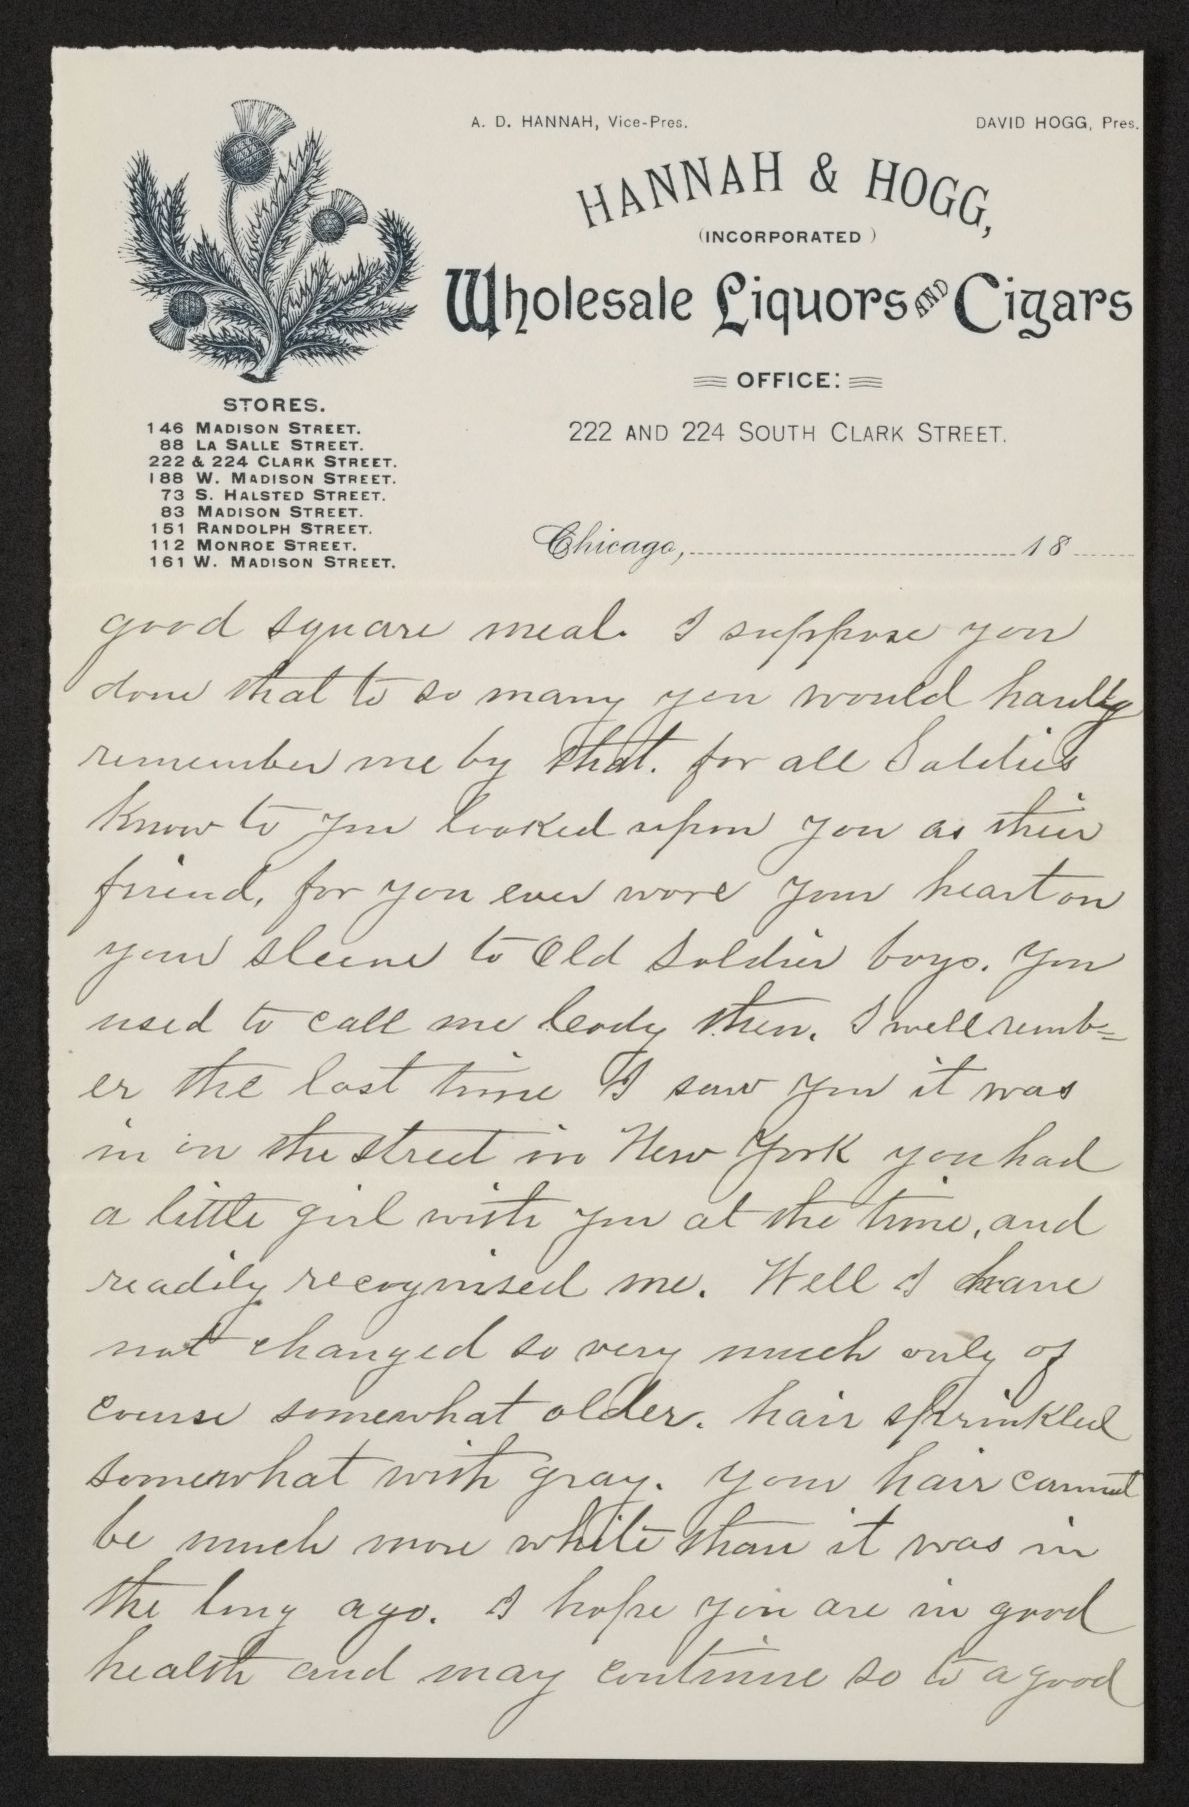 A. D. HANNAH, Vice-Pres.
DAVID HOGG, Pres.
HANNAH & HOGG,
(INCORPORATED)
Wholesale Liquors AND Cigars
OFFICE:
222 AND 224 SOUTH CLARK STREET.
STORES.
146 MADISON STREET.
88 LA SALLE STREET.
222 & 224 CLARK STREET.
188 W. MADISON STREET.
73 S. HALSTED STREET.
83 MADISON STREET.
151 RANDOLPH STREET.
112 MONROE STREET.
161 W. MADISON STREET.
Chicago, 18
good square meal. I suppose you
done that to so many you would hardly
remember me by that. for all Soldies
Know to you looked upon you as their
friend, for you ever wore your heart on
your sleeve to Old Soldier boys. You
used to call me Cody then. I well remb=
er the last time I saw you it was
in on the street in New York you had
a little girl with you at the time, and
readily recognised me. Well I have
not changed so very much only of
course somewhat older. hair sprinkled
somewhat with gray. Your hair cannot
be much more white than it was in
the long ago. I hope you are in good
health and may continue so to a good